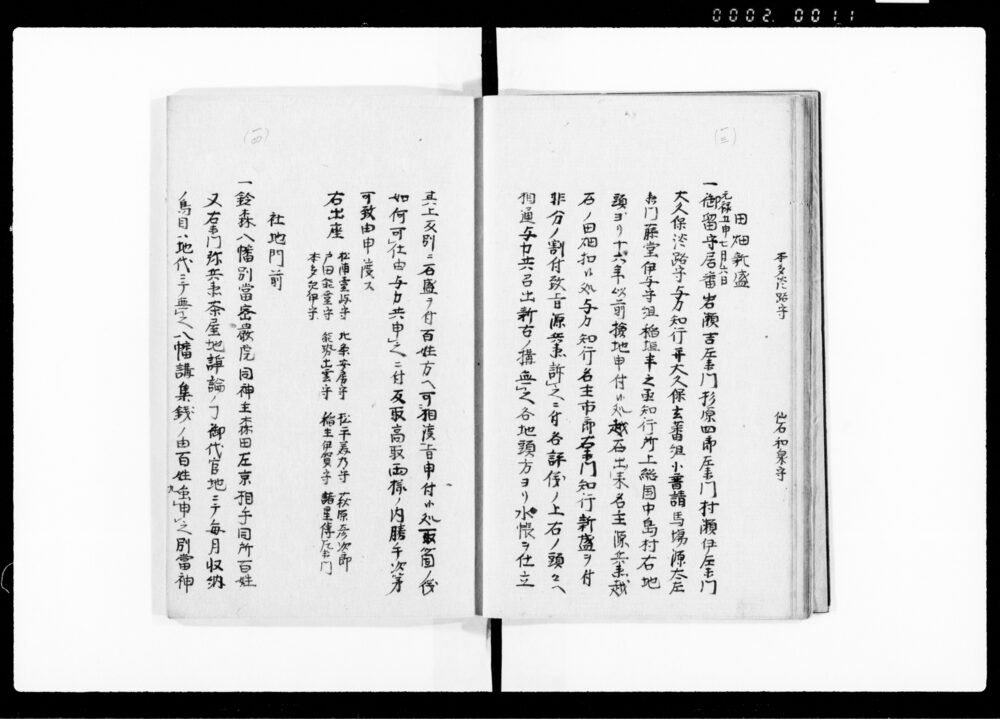 0002.0011
(三)
本多淡路守 仙石和泉守
田畑新盛
元禄五申七月六日
一御留守居番岩瀬吉左衛門杉原四郎左衛門村瀬伊左衛門
大久保淡路守与力知行并大久保玄蕃組小普請馬場源左
衛門藤堂伊予守組稲垣半之丞知行所上総国中島村右地
頭ヨリ十六年以前検地申付候処越石出来名主源兵衛越
石ノ田畑扣候処与力知行名主市郎右衛門知行新盛ヲ付
非分ノ割付致旨源兵衛訴之ニ付各評儀ノ上右ノ頭々ヘ
相通与力共召出新古ノ構無之各地頭方ヨリ水帳ヲ仕立
(四)
其上反別ニ石盛ヲ付百姓方ヘ可相渡旨申付候処取箇ノ儀
如何可仕由与力共申之ニ付反取高取両様ノ内勝手次第
可致由申渡ス
右出座 松浦壱岐守 北条安房守 松平美乃守 萩原彦次郎
戸田能登守 能勢出雲守 稲生伊賀守 諸星傳左衛門
本多紀伊守
社地門前
一鈴森八幡別當密嚴院同神主森田左京相手同所百姓
又右衛門弥兵衛茶屋地諍論ノ丁御代官地ニテ毎月収納
ノ鳥目ハ地代ニテ無之八幡講集銭ノ由百姓共申之別當神